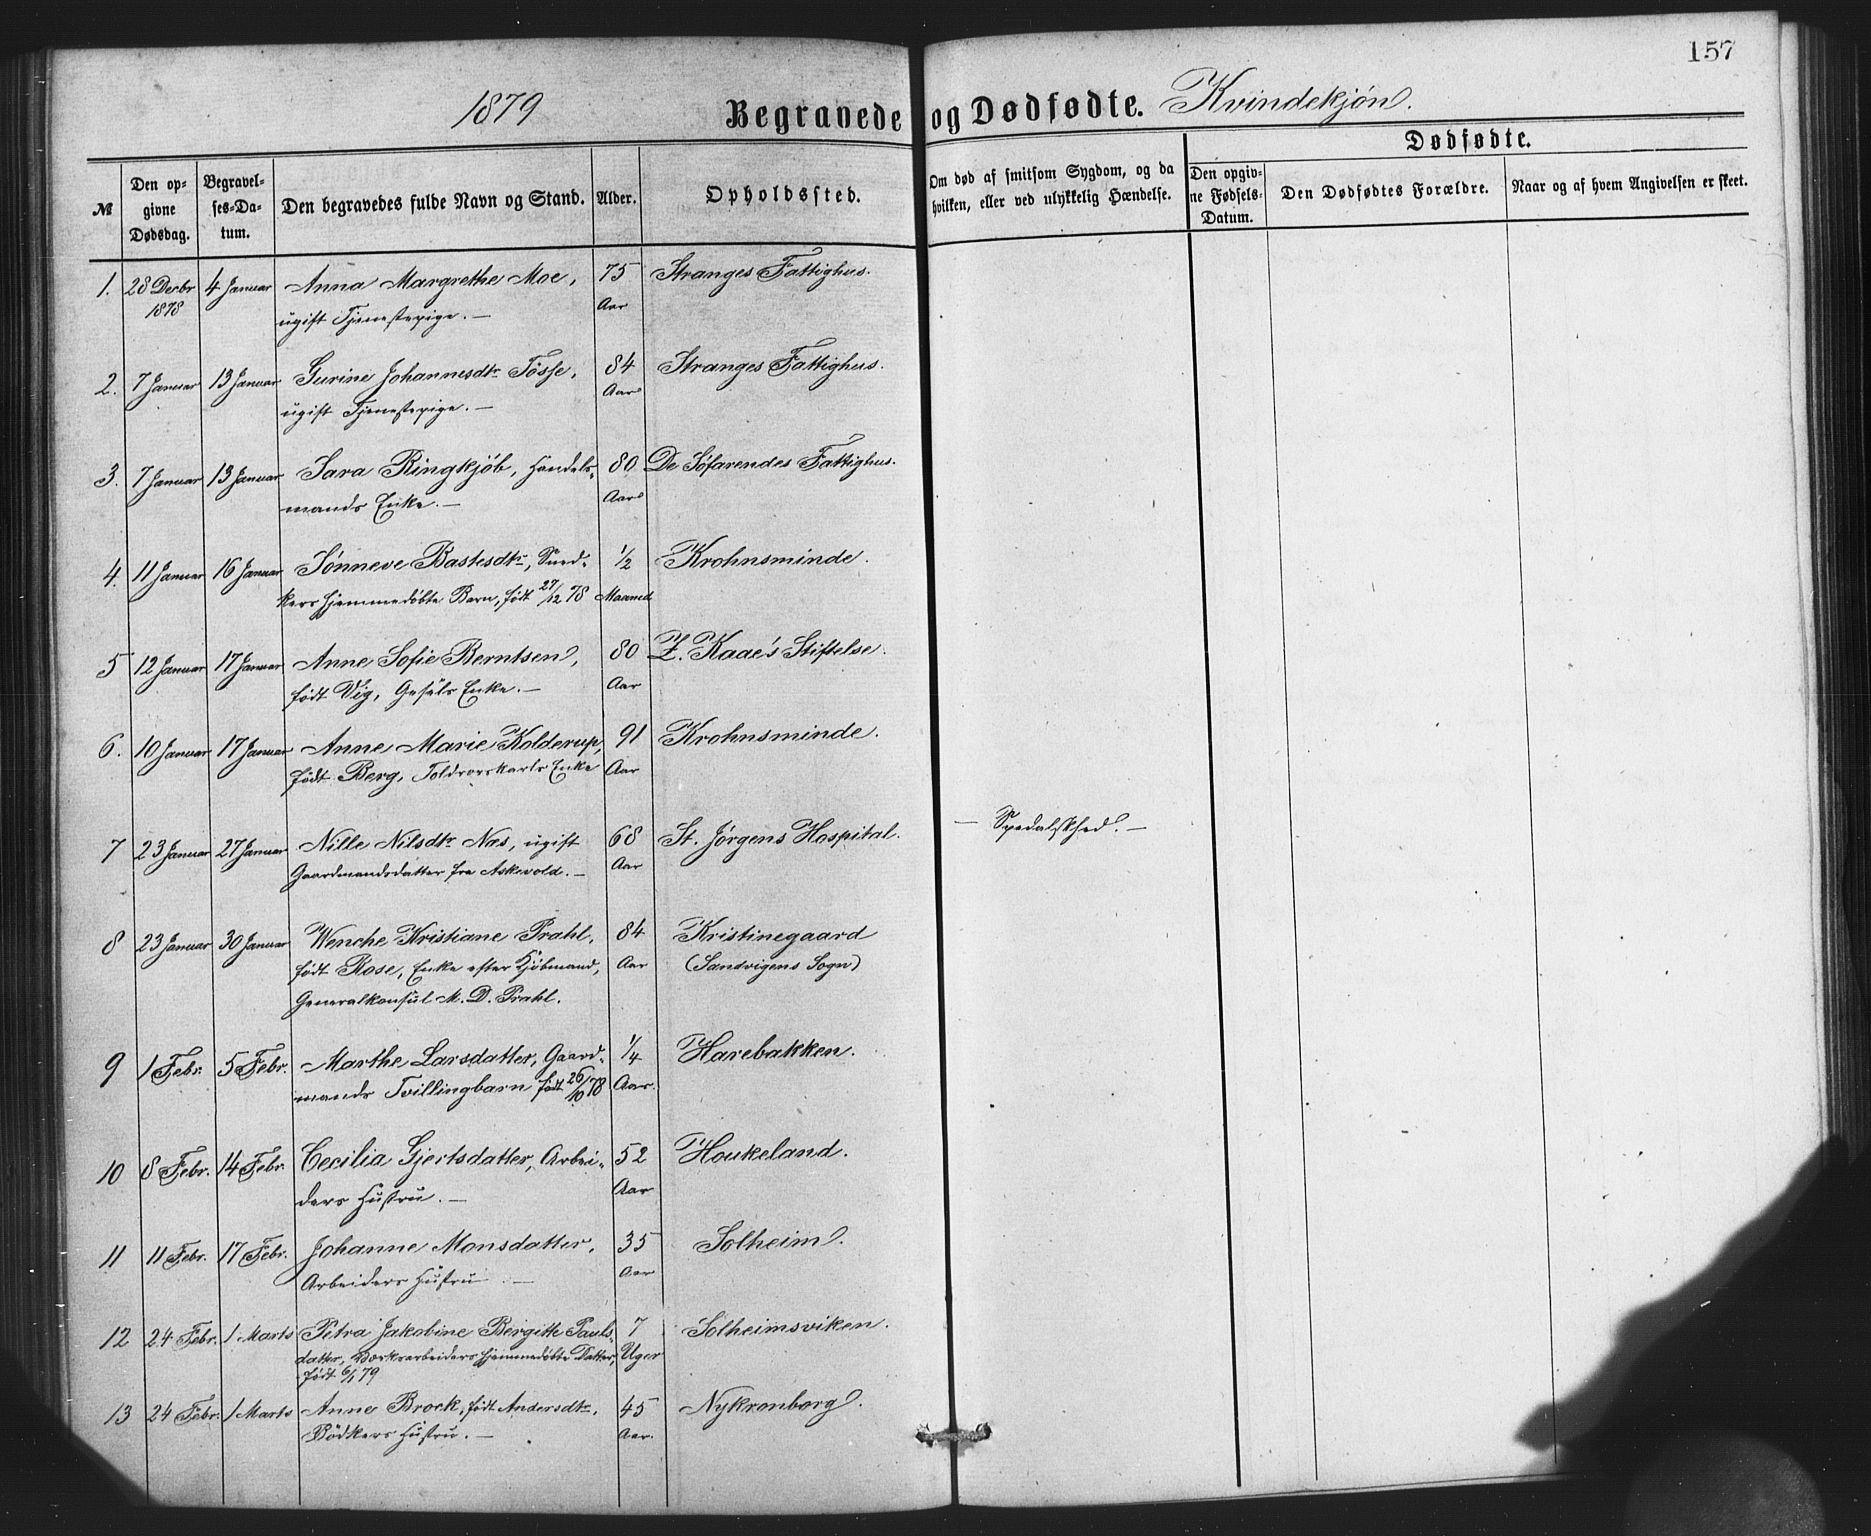 157
1879 Begravede og Dødfødte. Kvindekjøn.
№ Den opgivne Dødsdag. Begravelses-Datum. Den begravedes fulde Navn og Stand. Alder. Opholdssted. Om død af smitsom Sygdom, og da hvilken, eller ved ulykkelig Hændelse. Dødfødte. Den opgivne Fødsels-Datum. Den Dødfødtes Forældre. Naar og af hvem Angivelsen er skeet.
1. 28 Decbr 4 Januar Anna Margrethe Moe, 75 Stranges Fattighus.
1878 ugift Tjenestepige. — Aar
2. 7 Januar 13 Januar Gurine Johannesdtr Tösse, 84 Stranges Fattighus.
ugift Tjenestepige. — Aar
3. 7 Januar 13 Januar Sara Ringkjöb, Handels- 80 De Söfarendes Fattighus.
mands Enke. — Aar
4. 11 Januar 16 Januar Sönneve Bastesdtr, Sned- 1/2 Krohnsminde.
kers hjemmedöbte Barn, født 27/12 78 Maaned
5 12 Januar 17 Januar Anne Sofie Berntsen, 80 Z. Kaae's Stiftelse.
født Vig, Gesels Enke. — Aar
6. 10 Januar 17 Januar Anne Marie Kolderup, 91 Krohnsminde.
født Berg, Toldrorskarls Enke Aar
7 23 Januar 27 Januar Nille Nilsdtr Næs, ugift 68 St. Jørgens Hospital. — Spedalskhed. —
Gaardmandsdatter fra Askevold. — Aar
8 23 Januar 30 Januar Wenche Kristiane Prahl, 84 Kristinegaard
født Rose, Enke efter Kjöbmand, Aar (Sandvigens Sogn)
Generalkonsul M. D. Prahl.
9 1 Febr. 5 Febr. Marthe Larsdatter, Gaard- 1/4 Harebakken.
mands Tvillingbarn født 26/10 78 Aar.
10 8 Febr. 14 Febr. Cecilia Gjertsdatter, Arbei- 52 Houkeland.
ders Hustru. — Aar
11 11 Febr. 17 Febr. Johanne Monsdatter, 35 Solheim.
Arbeiders Hustru — Aar
12 24 Febr. 1 Marts Petra Jakobine Bergitte Pauls- 7 Solheimsviken.
datter, Værksarbeiders hjemmedöbte Datter, Uger
født 6/1 79
13 24 Febr. 1 Marts Anne Brock, født Andersdtr, 45 Nykronborg.
Bödkers Hustru. — Aar.